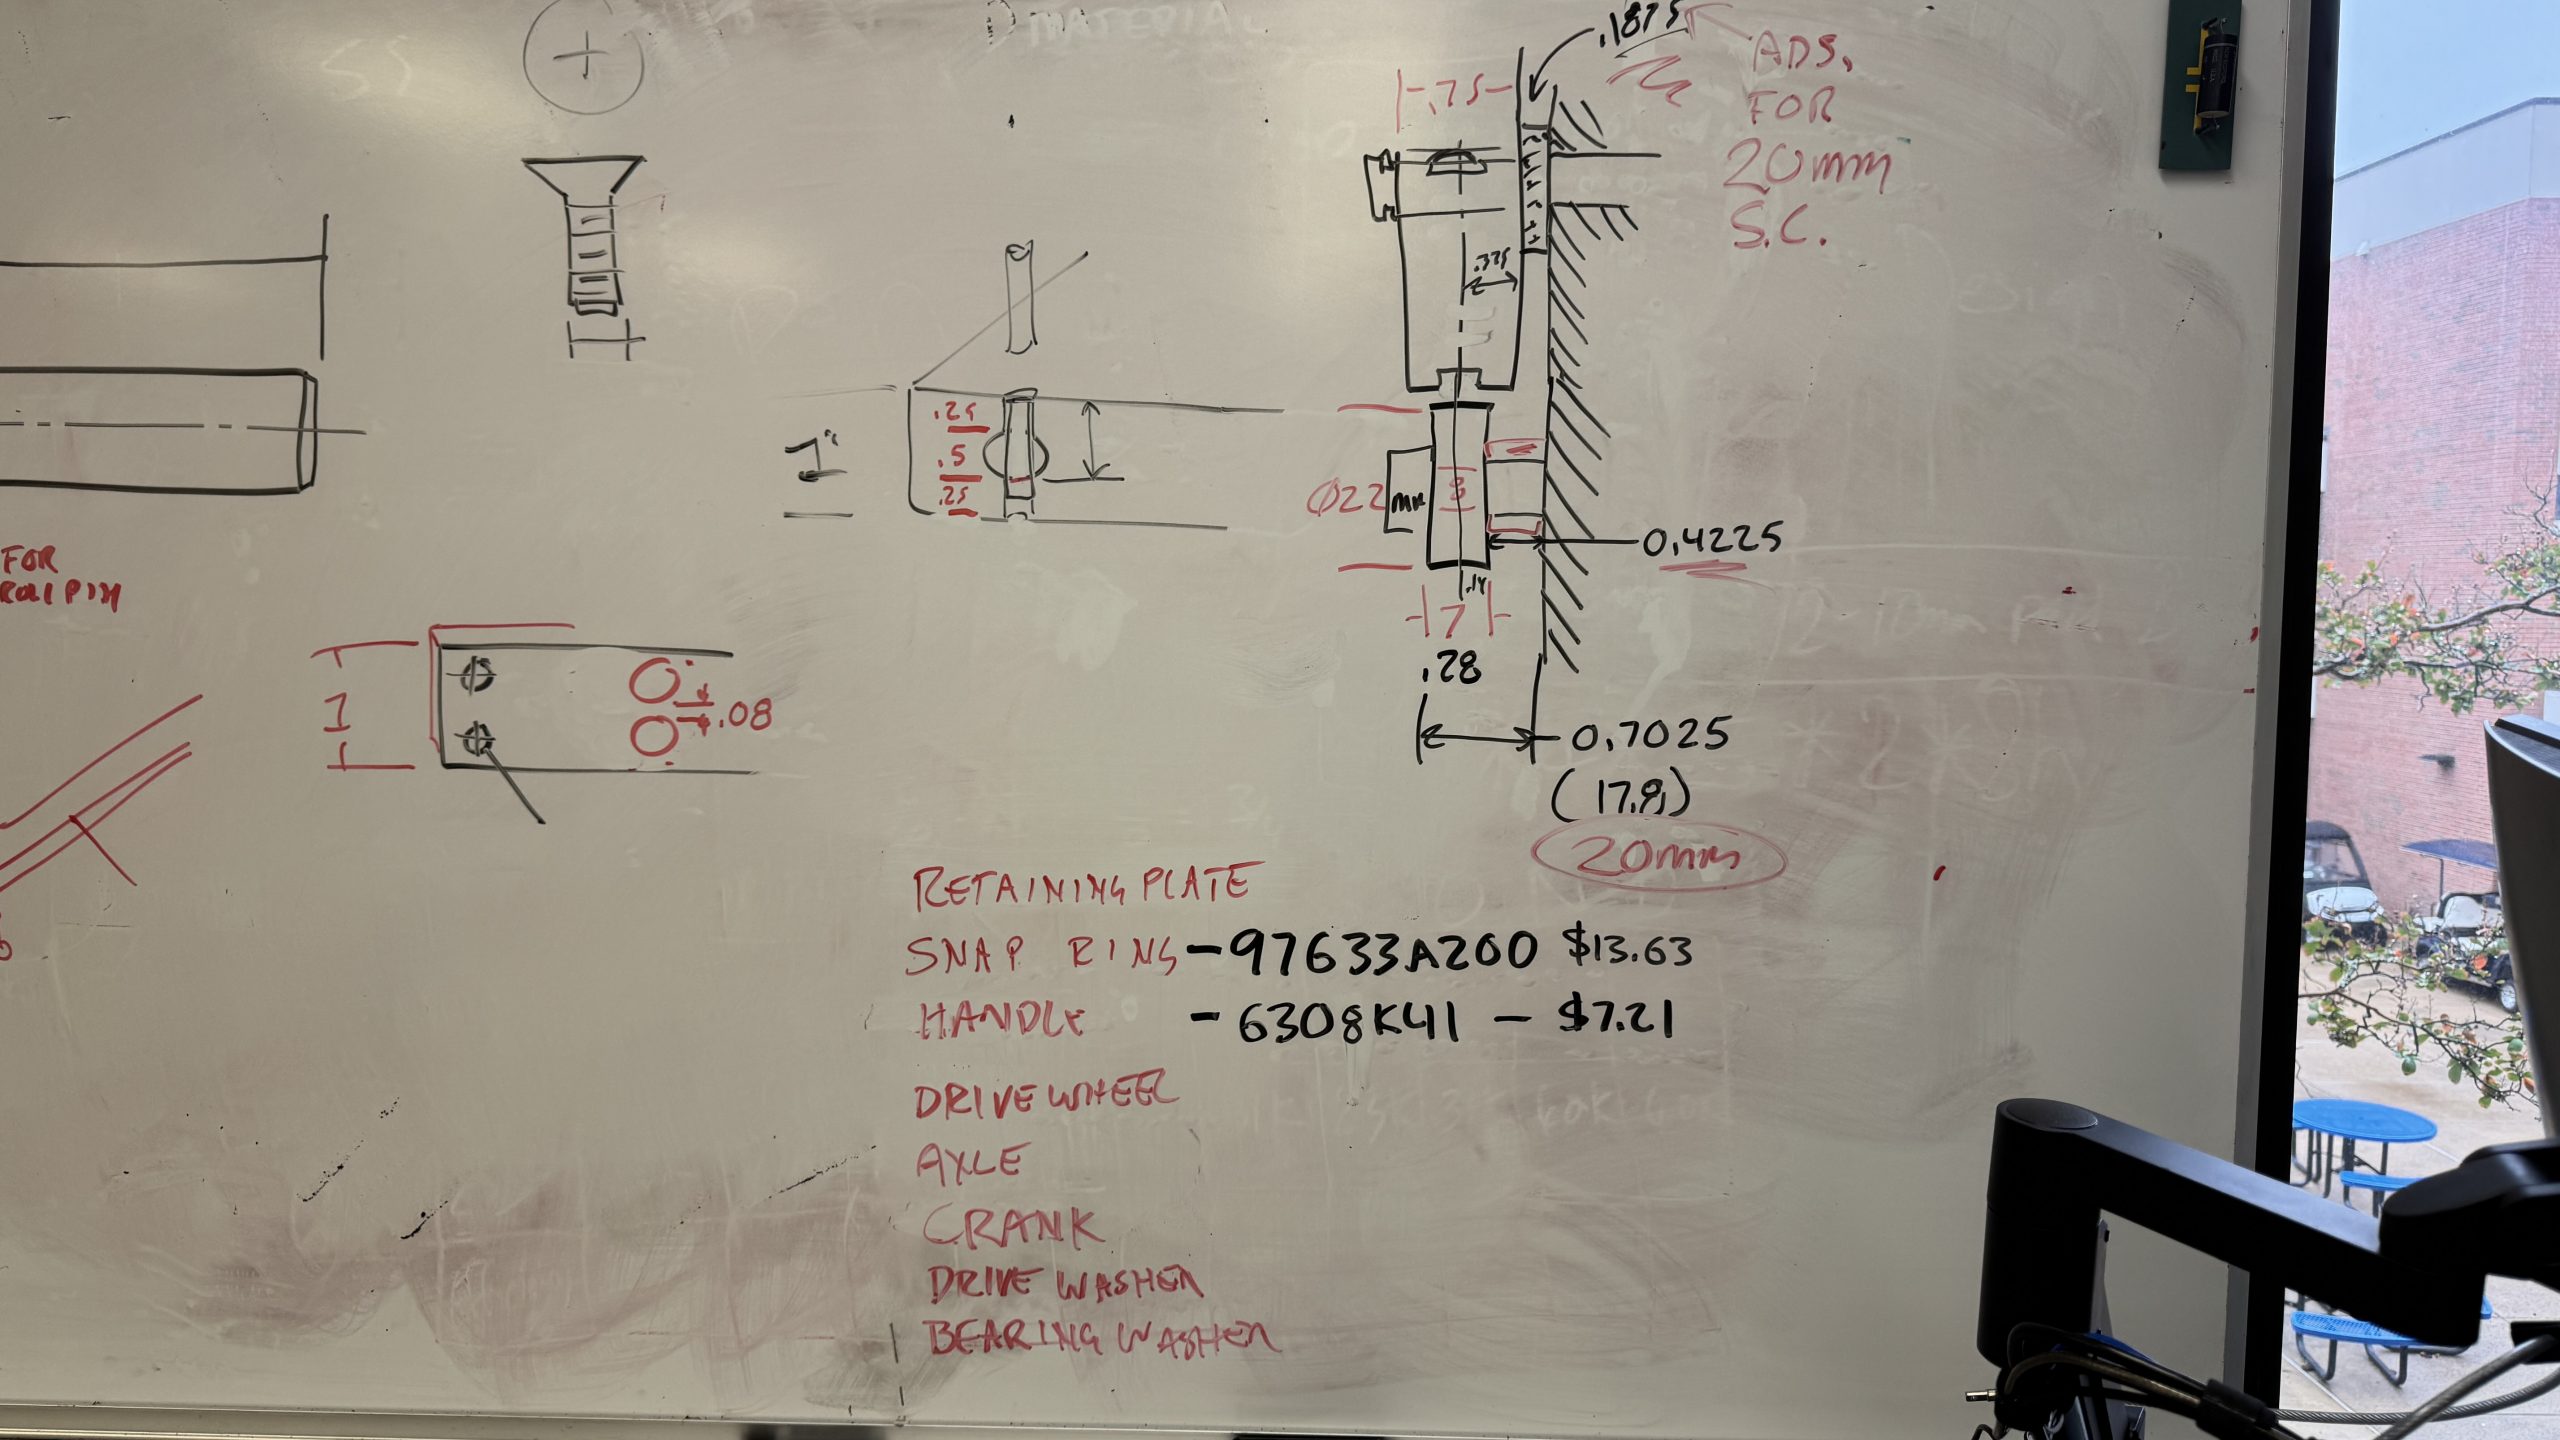 .1875
ADS.
FOR
20mm
S.C.
.75
.375
1"
.25
.5
.25
Ø22 mm
8
0.4225
.14
7
.28
0.7025
(17.8)
20mm
FOR
ROLL PIN
1
.08
RETAINING PLATE
SNAP RING - 97633A200 $13.63
HANDLE - 6308K41 - $7.21
DRIVE WHEEL
AXLE
CRANK
DRIVE WASHER
BEARING WASHER